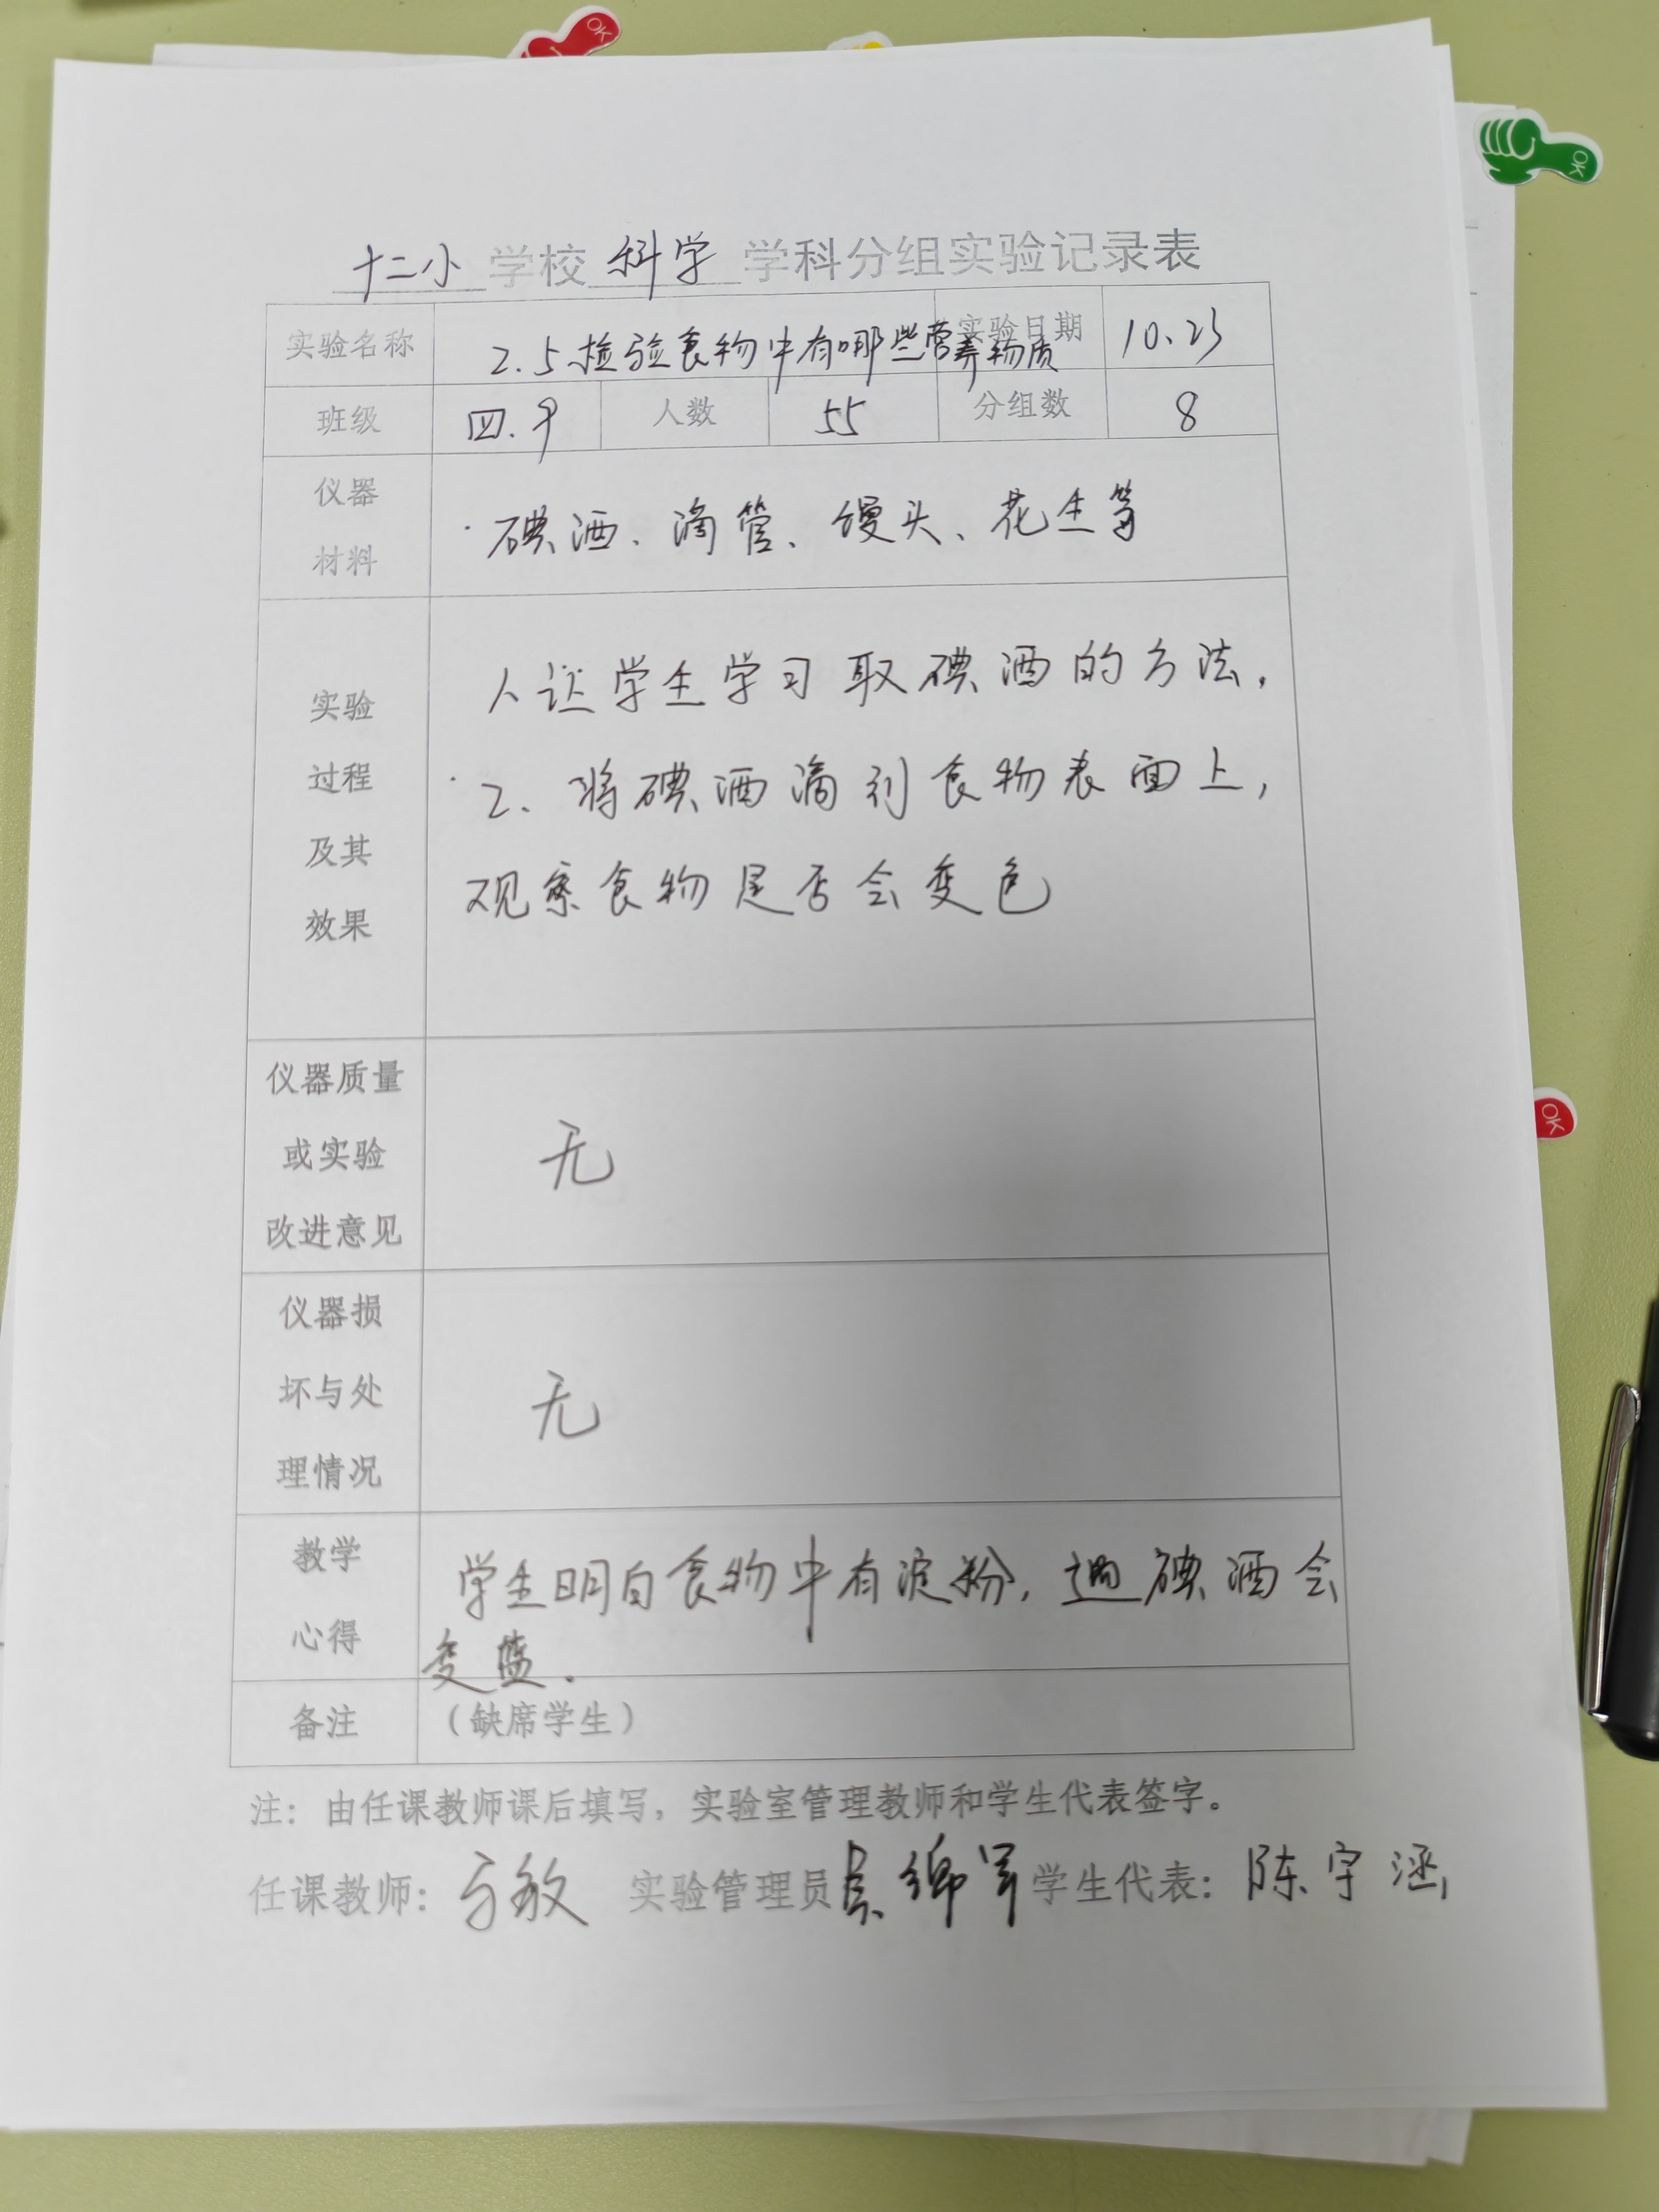 十二小 学校 科学 学科分组实验记录表
实验名称 2.5检验食物中有哪些营养物质 实验日期 10.23
班级 四.9 人数 55 分组数 8
仪器
材料
碘酒、滴管、馒头、花生等
实验
过程
及其
效果
1、让学生学习取碘酒的方法.
2、将碘酒滴到食物表面上,
观察食物是否会变色
仪器质量
或实验
改进意见
无
仪器损
坏与处
理情况
无
教学
心得
学生明白食物中有淀粉,遇碘酒会
变蓝.
备注 (缺席学生)
注: 由任课教师课后填写, 实验室管理教师和学生代表签字。
任课教师: 方敏 实验管理员 学生代表: 陈宇涵
OK
OK
OK